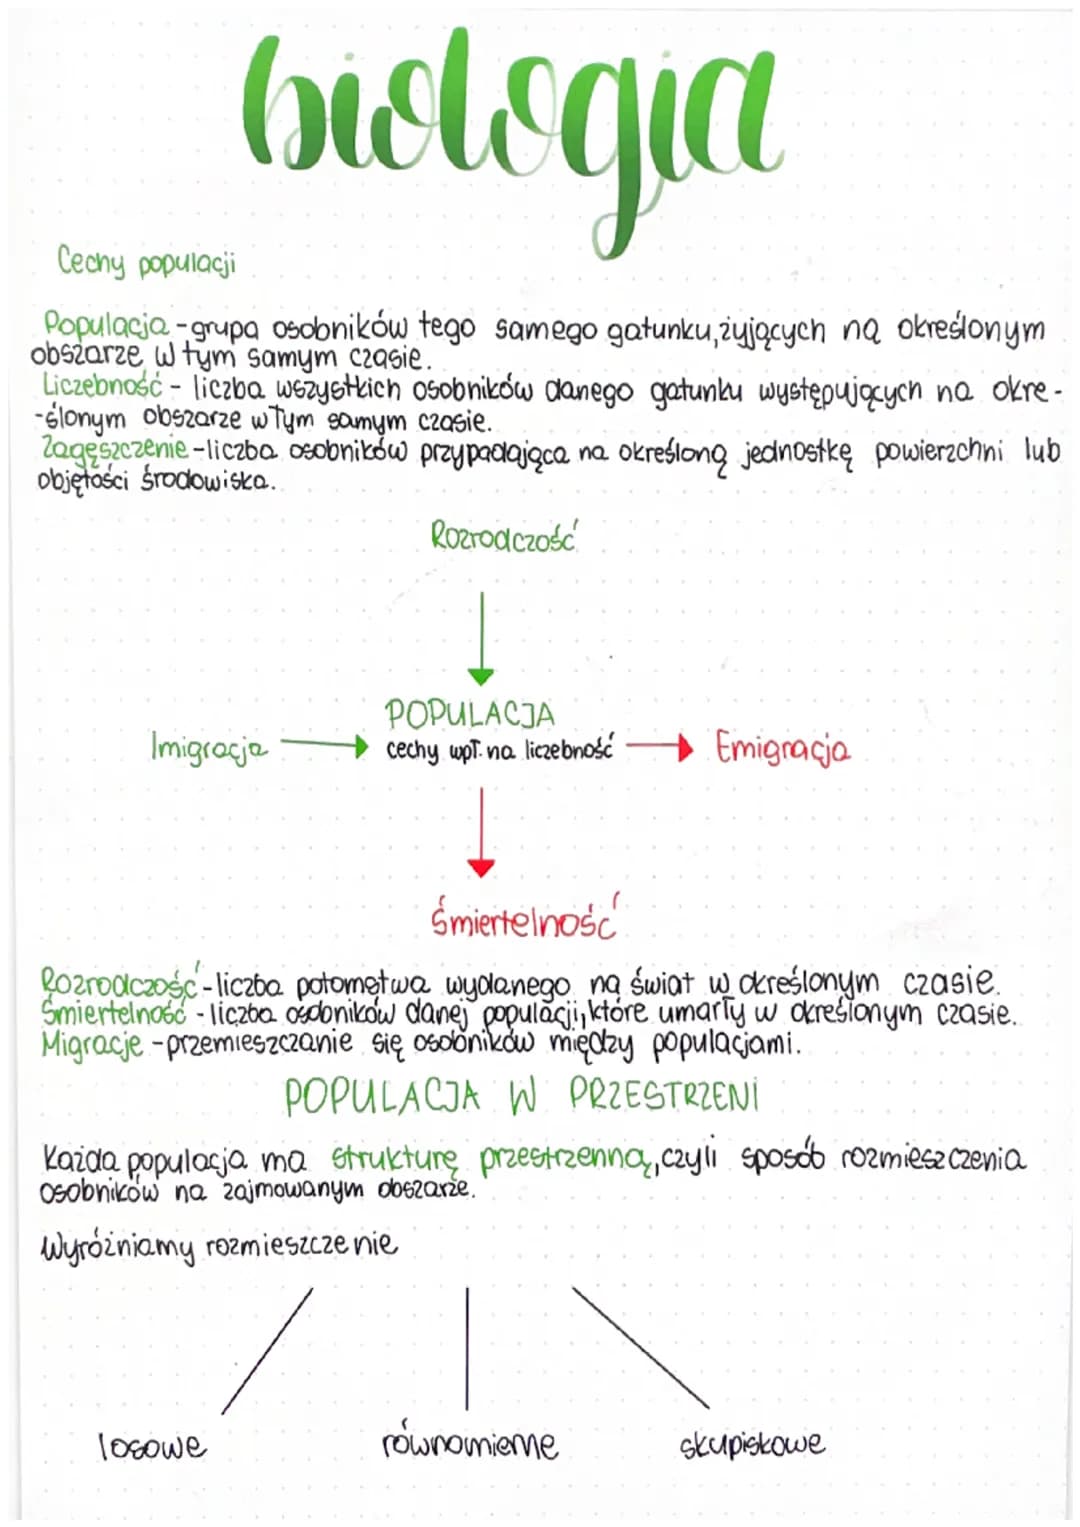 biologia
Cechy populacji
Populacja - grupa osobników tego samego gatunku, żyjących na określonym
obszarze w tym samym czasie.
Liczebność - liczba wszystkich osobników danego gatunku występujących na okre-
-ślonym obszarze w tym samym czasie.
Zagęszczenie - liczba osobników przypadająca na określoną jednostkę powierzchni lub
objętości środowiska.
Rozrodczość
POPULACJA
Imigracja
cechy wpł. na liczebność
Emigracja
Śmiertelność
Rozrodczość - liczba potomstwa wydanego na świat w określonym czasie.
Śmiertelność - liczba osobników danej populacji, które umarły w określonym czasie.
Migracje - przemieszczanie się osobników między populacjami.
POPULACJA W PRZESTRZENI
Każda populacja ma strukturę przestrzenną, czyli sposób rozmieszczenia
osobników na zajmowanym obszarze.
Wyróżniamy rozmieszczenie
losowe
równomierne
skupiskowe